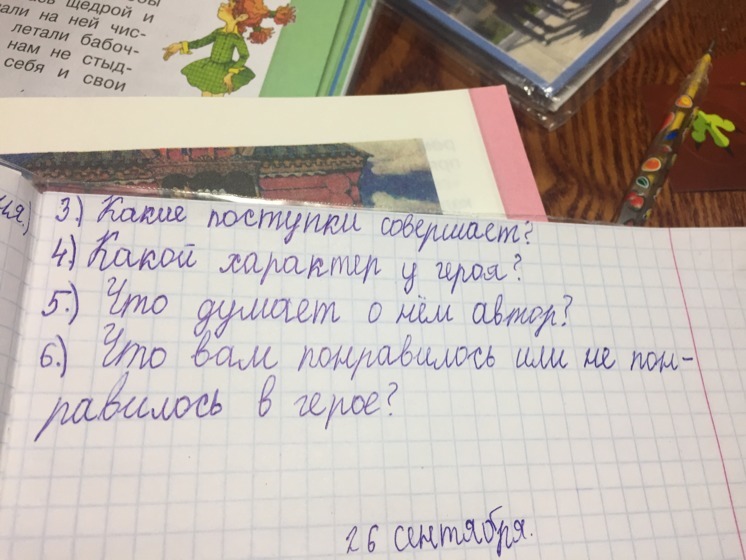 щедрой и
али на ней чис-
летали бабоч-
нам не стыд-
себя и свои
3.) Какие поступки совершает?
4.) Какой характер у героя?
5.) Что думает о нём автор?
6.) Что вам понравилось или не пон-
равилось в герое?
26 сентября.